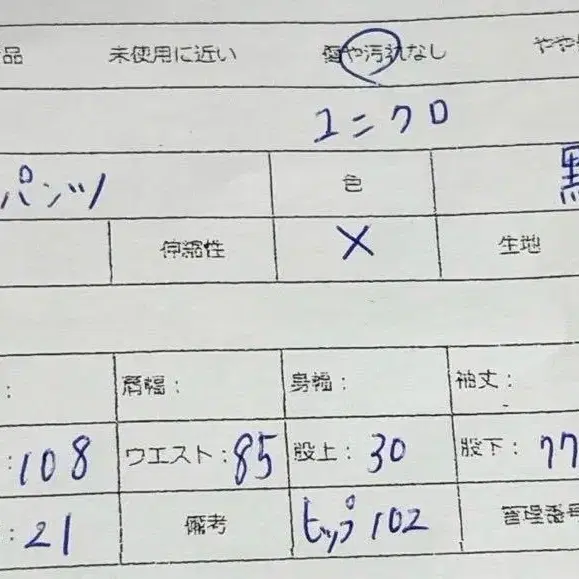 品 未使用に近い 傷や汚れなし やや
ユニクロ
パンツ 色 黒
伸縮性 × 生地
: 肩幅: 身幅: 袖丈:
:108 ウエスト:85 股上:30 股下:77
:21 備考 ヒップ102 管理番号